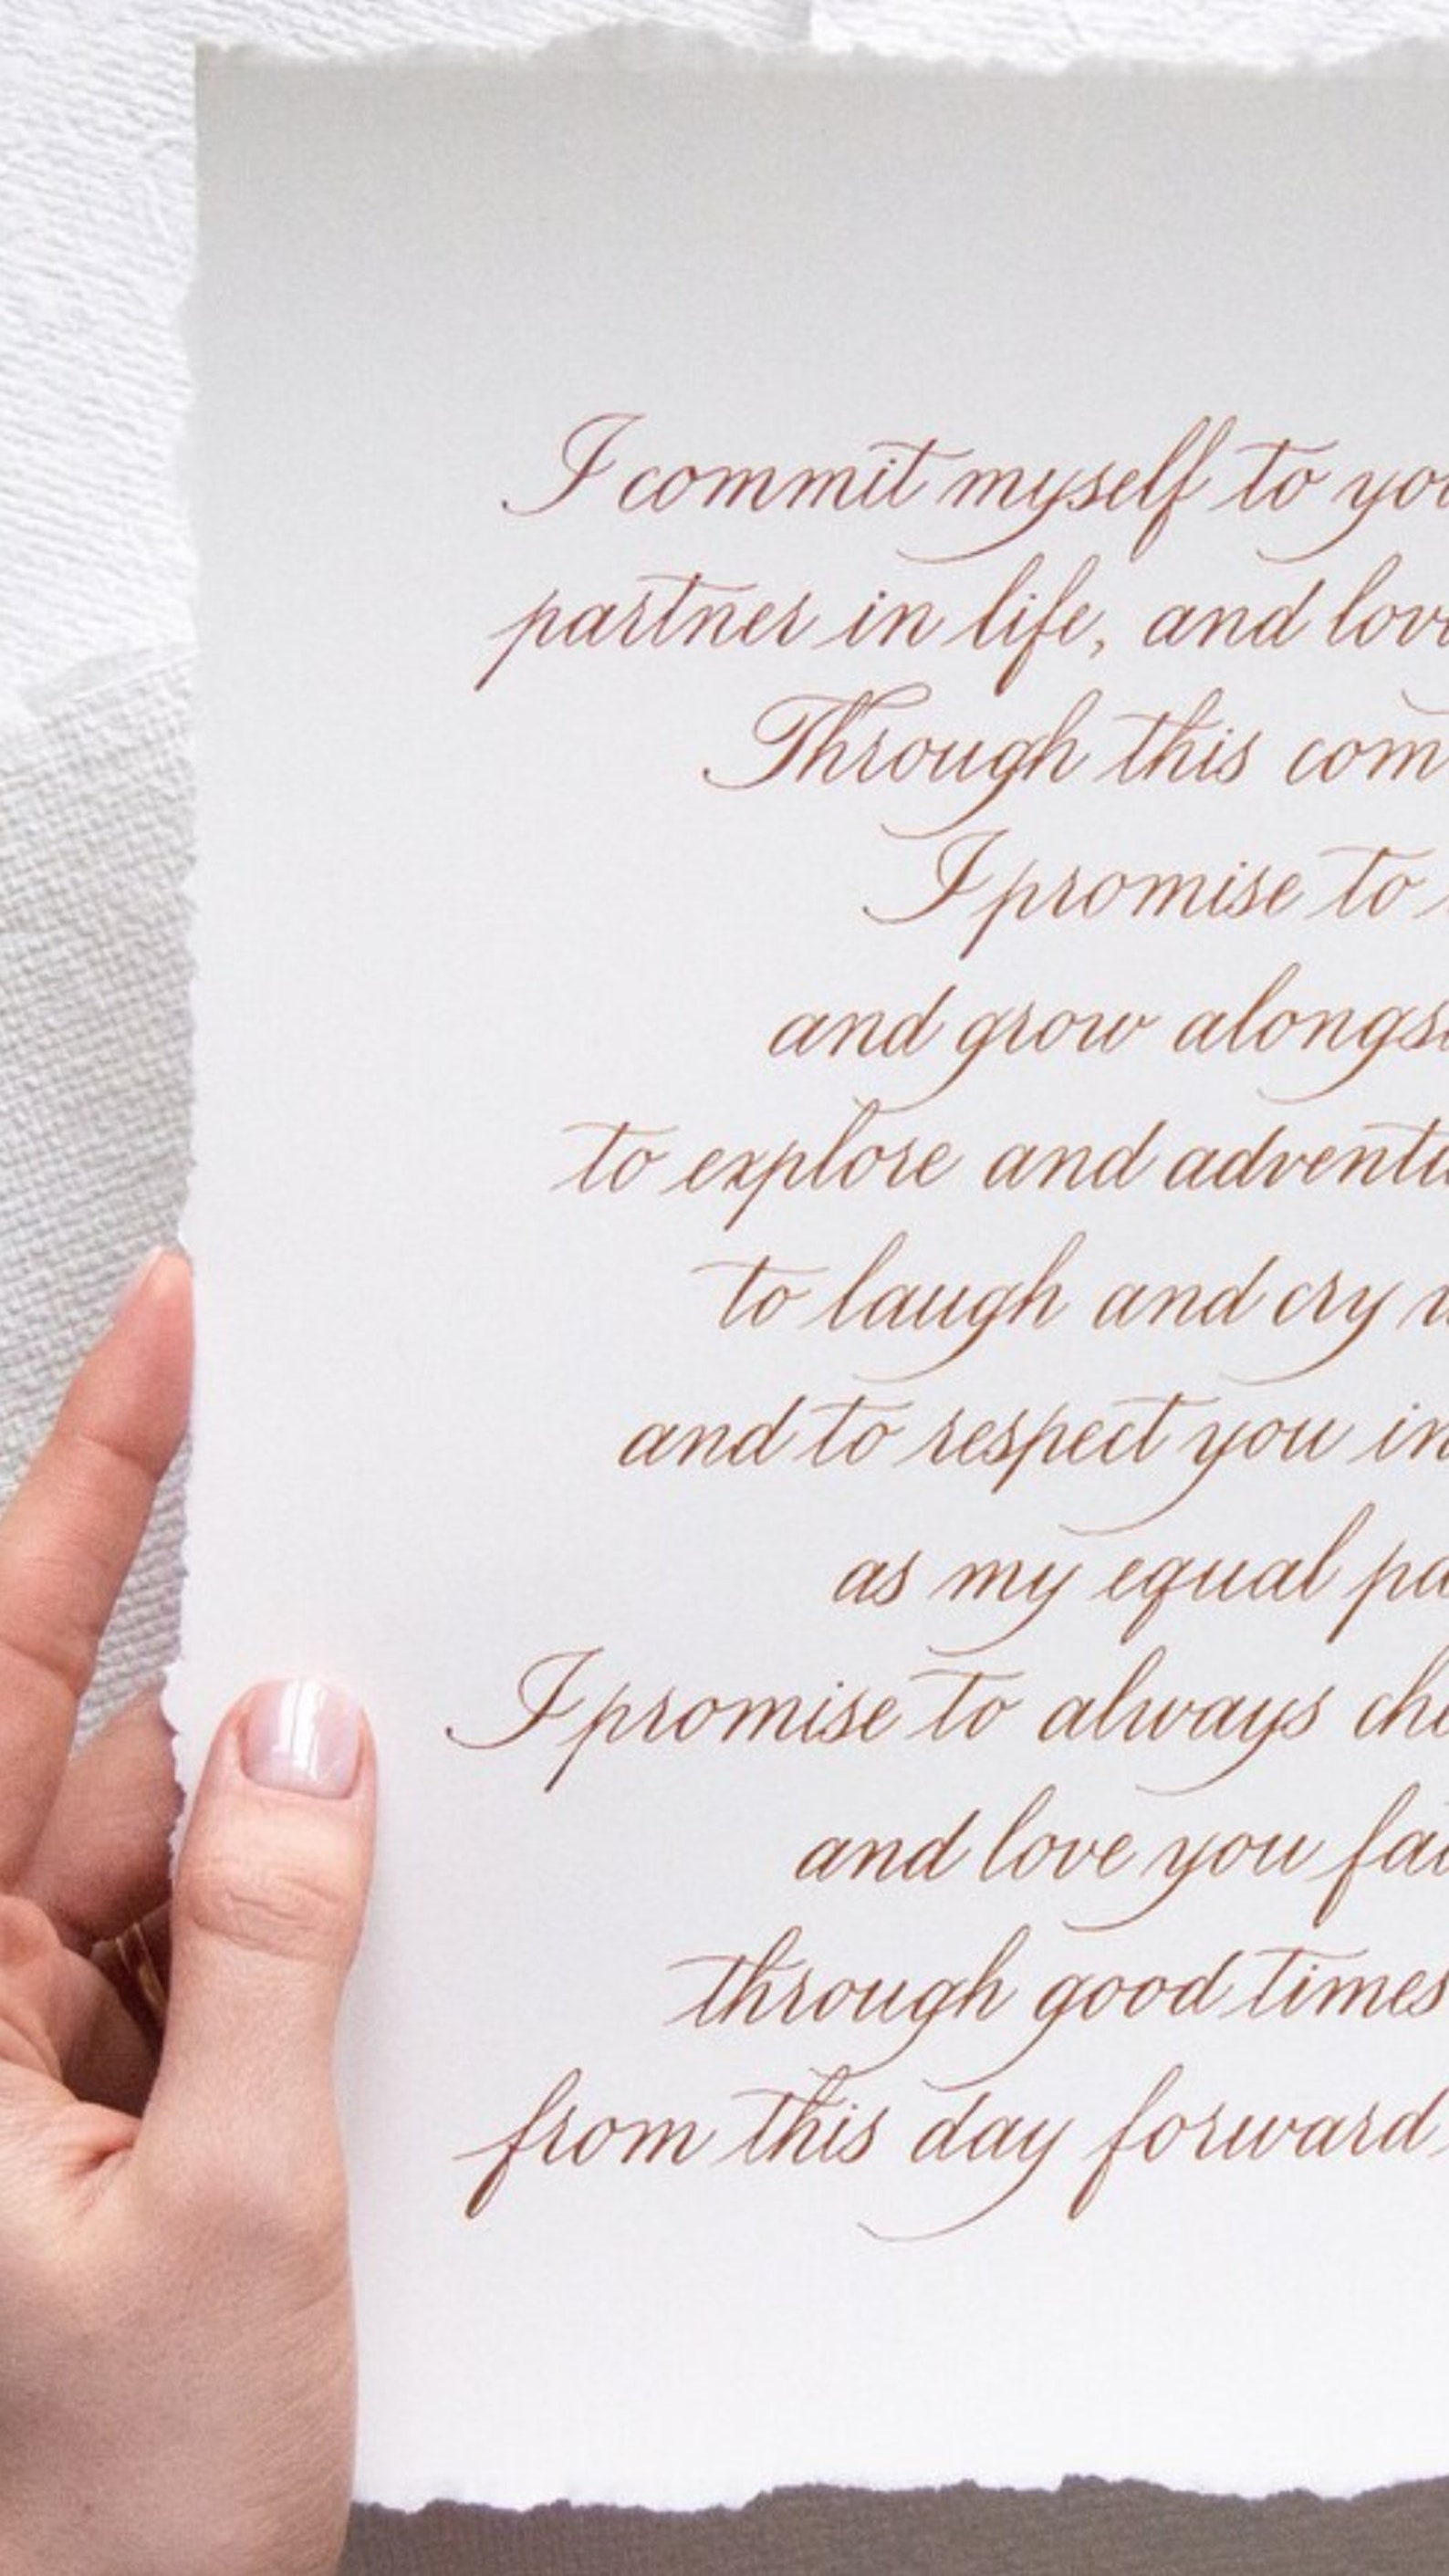 I commit myself to yo
partner in life, and lov
Through this com
I promise to
and grow alongs
to explore and adventu
to laugh and cry
and to respect you in
as my equal pa
I promise to always che
and love you fai
through good times
from this day forward